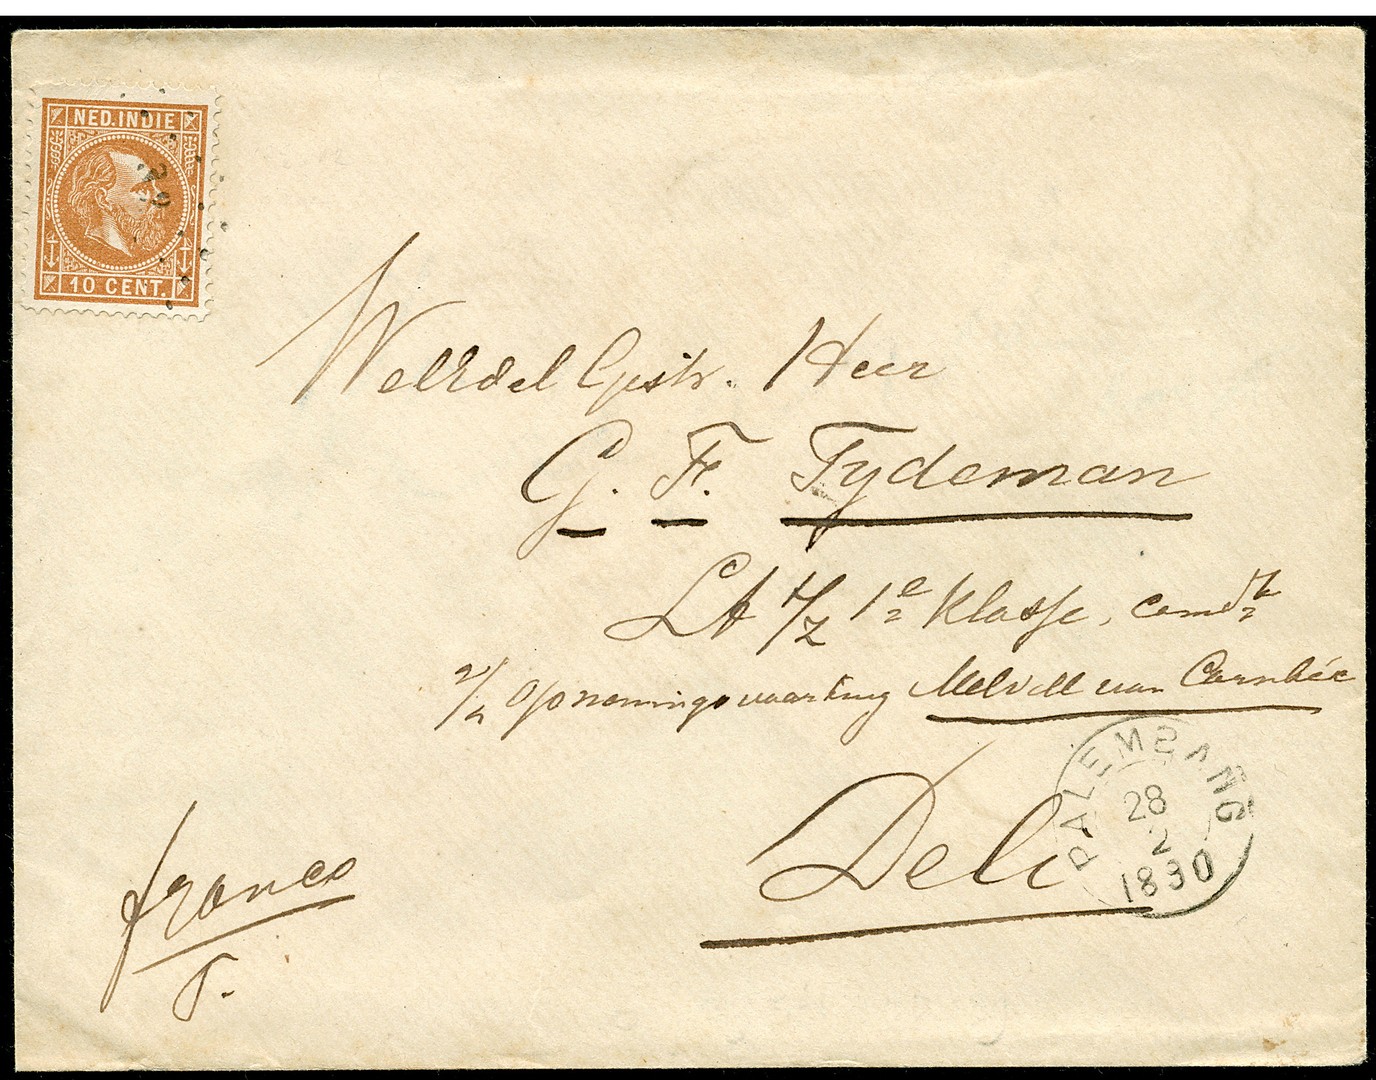 NED. INDIE
10 CENT.
WelEdel Gestr. Heer
G. F. Tydeman
Lt t/z 1e Klasse, comdt
v/h Opnemingsvaartuig Melvill van Carnbée
Deli
PALEMBANG
28
2
1880
franco
T.